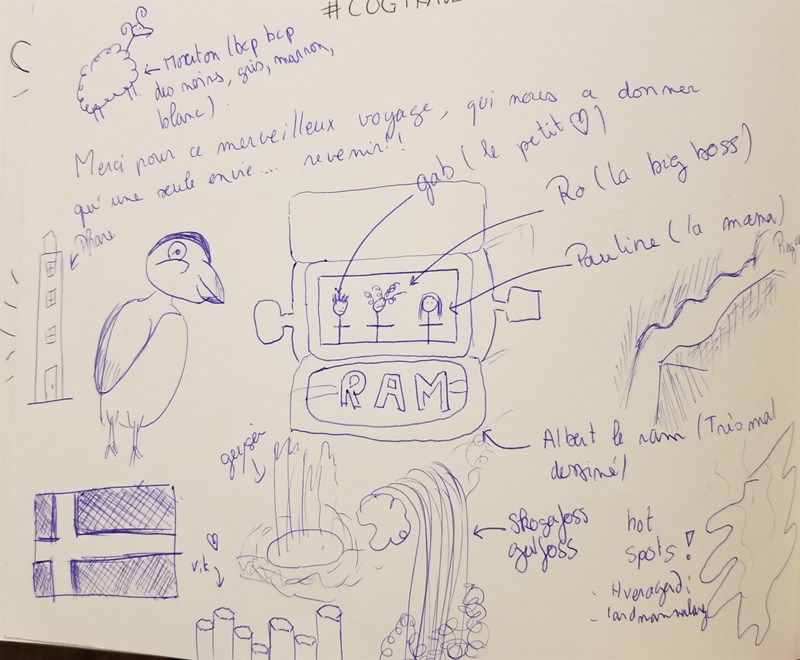 #COGTRAVEL
← Mouton (bcp bcp
des noirs, gris, marron,
blanc).
Merci pour ce merveilleux voyage, qui nous a donner
qu'une seule envie... revenir!!
gab (le petit ♡)
Ro (la big boss)
Pauline (la mama)
Phare
RAM
Albert le ram (Très mal
dessiné)
geyser
Skogafoss
gulfoss
hot
spots!
- Hveragerdi
- landmannalaug
vik